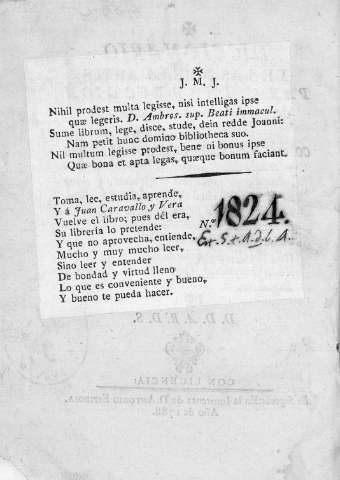 ✠
J. M. J.
Nihil prodest multa legisse, nisi intelligas ipse
quæ legeris. D. Ambros. sup. Beati immacul.
Sume librum, lege, disce, stude, dein redde Joanni:
Nam petit hunc domino bibliotheca suo.
Nil multum legisse prodest, bene ni bonus ipse
Quæ bona et apta legas, quæque bonum faciant.
Toma, lee, estudia, aprende,
Y á Juan Caravallo y Vera
Vuelve el libro; pues dél era,
Su librería lo pretende:
Y que no aprovecha, entiende,
Mucho y muy mucho leer,
Sino leer y entender
De bondad y virtud lleno
Lo que es conveniente y bueno,
Y bueno te pueda hacer.
N.º 1824.
D. D. A. R. D. S.
CON LICENCIA:
En la Imprenta de D. Antonio Espinosa
Año de 1788.